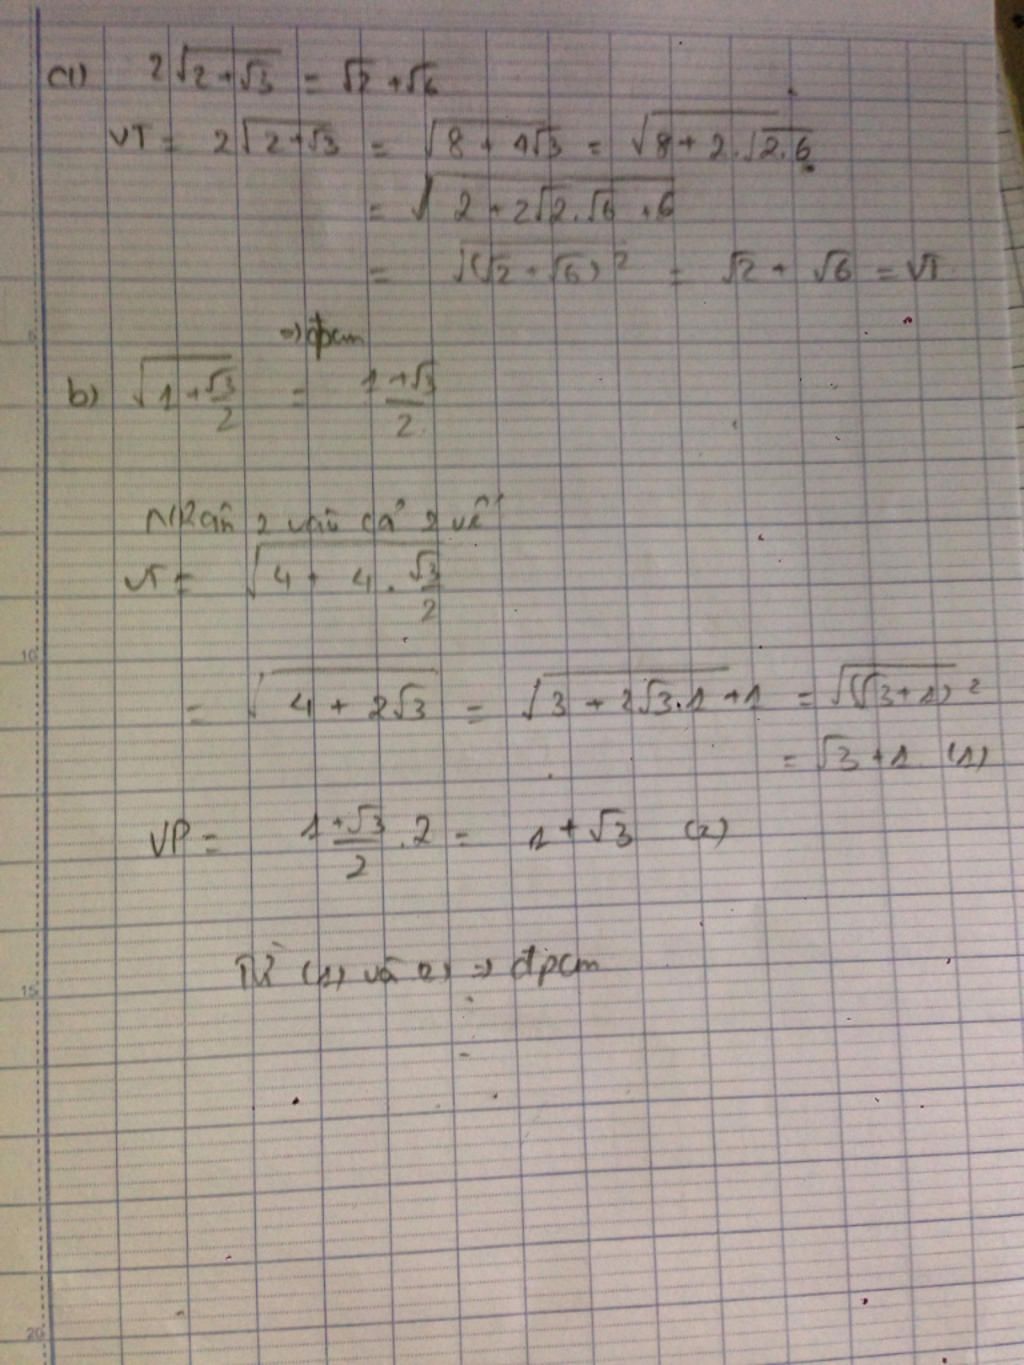 a) 2√(2+√3) = √2 + √6
VT = 2√(2+√3) = √(8 + 4√3) = √(8 + 2.√(2.6))
= √(2 + 2√2.√6 + 6)
= √((√2 + √6)²) = √2 + √6 = VT
=> đpcm
b) √(1 + √3/2) = (1+√3)/2
Nhân 2 vào cả 2 vế
VT = √(4 + 4.√3/2)
= √(4 + 2√3) = √(3 + 2√3.1 + 1) = √((√3+1)²)
= √3 + 1 (1)
VP = (1+√3)/2 .2 = 1 + √3 (2)
Từ (1) và (2) => đpcm
5
10
15
20